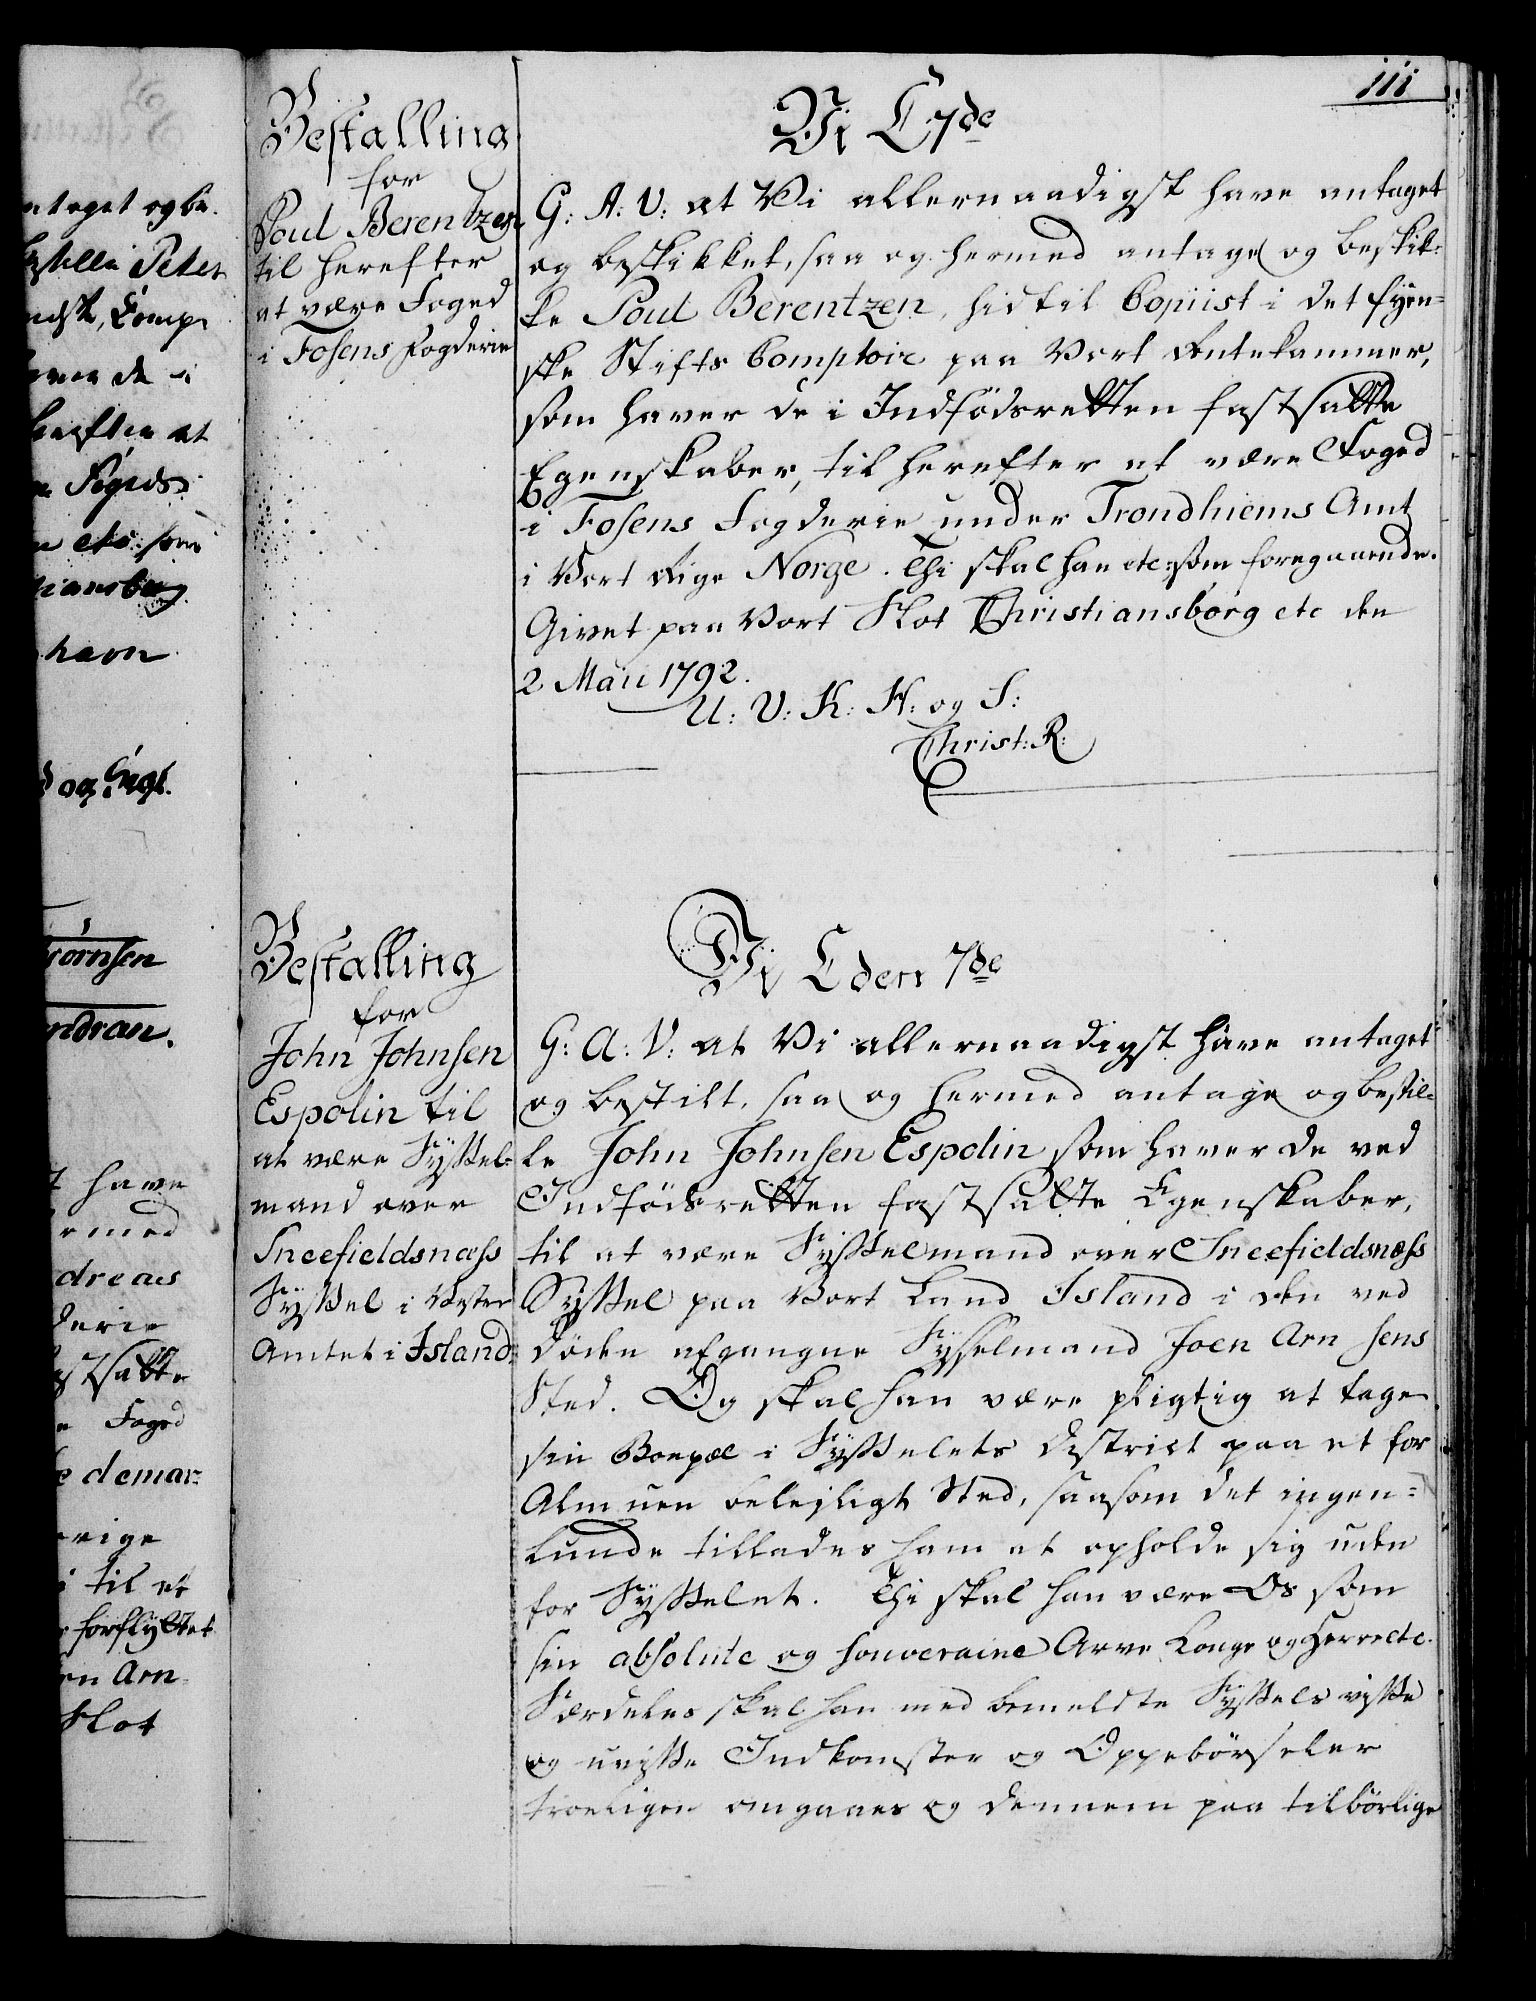 111
Bestalling
for
Poul Berentzen
til herefter
at være Foged
i Fosens Fogderie
Vi C 7de
G: A: V: at Vi allernaadigst have antaget
og beskikket, saa og hermed antage og beskik-
ke Poul Berentzen, hidtil Copiist i det fyen-
ske Stifts Comptoir paa Vort Rentekammer,
som haver de i Indfödsretten fastsatte
Egenskaber, til herefter at være Foged
i Fosens Fogderie under Trondhiems Amt
i Vort Rige Norge. Thi skal han etc: som foregaaende.
Givet paa Vort Slot Christiansborg etc den
2 Maii 1792.
U: V: K: H: og S:
Christ: R:
Bestalling
for
John Johnsen
Espolin til
at være Sÿssel-
mand over
Sneefieldsnæss
Sÿssel i Vester
Amtet i Island
Vi C den 7de
G: A: V: at Vi allernaadigst have antaget
og bestilt, saa og hermed antage og bestil-
le John Johnsen Espolin som haver de ved
Indfödsretten fastsatte Egenskaber,
til at være Sÿsselmand over Sneefieldsnæss
Sÿssel paa Vort Land Island i den ved
döden afgangne Sÿsselmand Joen Arnsens
Sted. Og skal han være pligtig at tage
sin Boepæl i Sÿsselets District paa et for
Almuen beleiligt Sted, saasom det ingen-
lunde tillades ham at opholde sig uden
for Sÿsselet. Thi skal han være Os som
sin absolute og souveraine Arve Konge og Herre etc.
Særdeles skal han med bemeldte Sÿssels visse
og uvisse Indkomster og Oppebörseler
troeligen omgaaes og dennem paa tilbörlige
ntaget og be-
Peter
Comp
haver de i
herefter at
etc: som
tiansborg
havn
og Engl.
iörnsen
endran.
have
ermed
dreas
derie
fastsatte
Foged
demar-
rige
til at
forflyttet
en Arn-
Slot